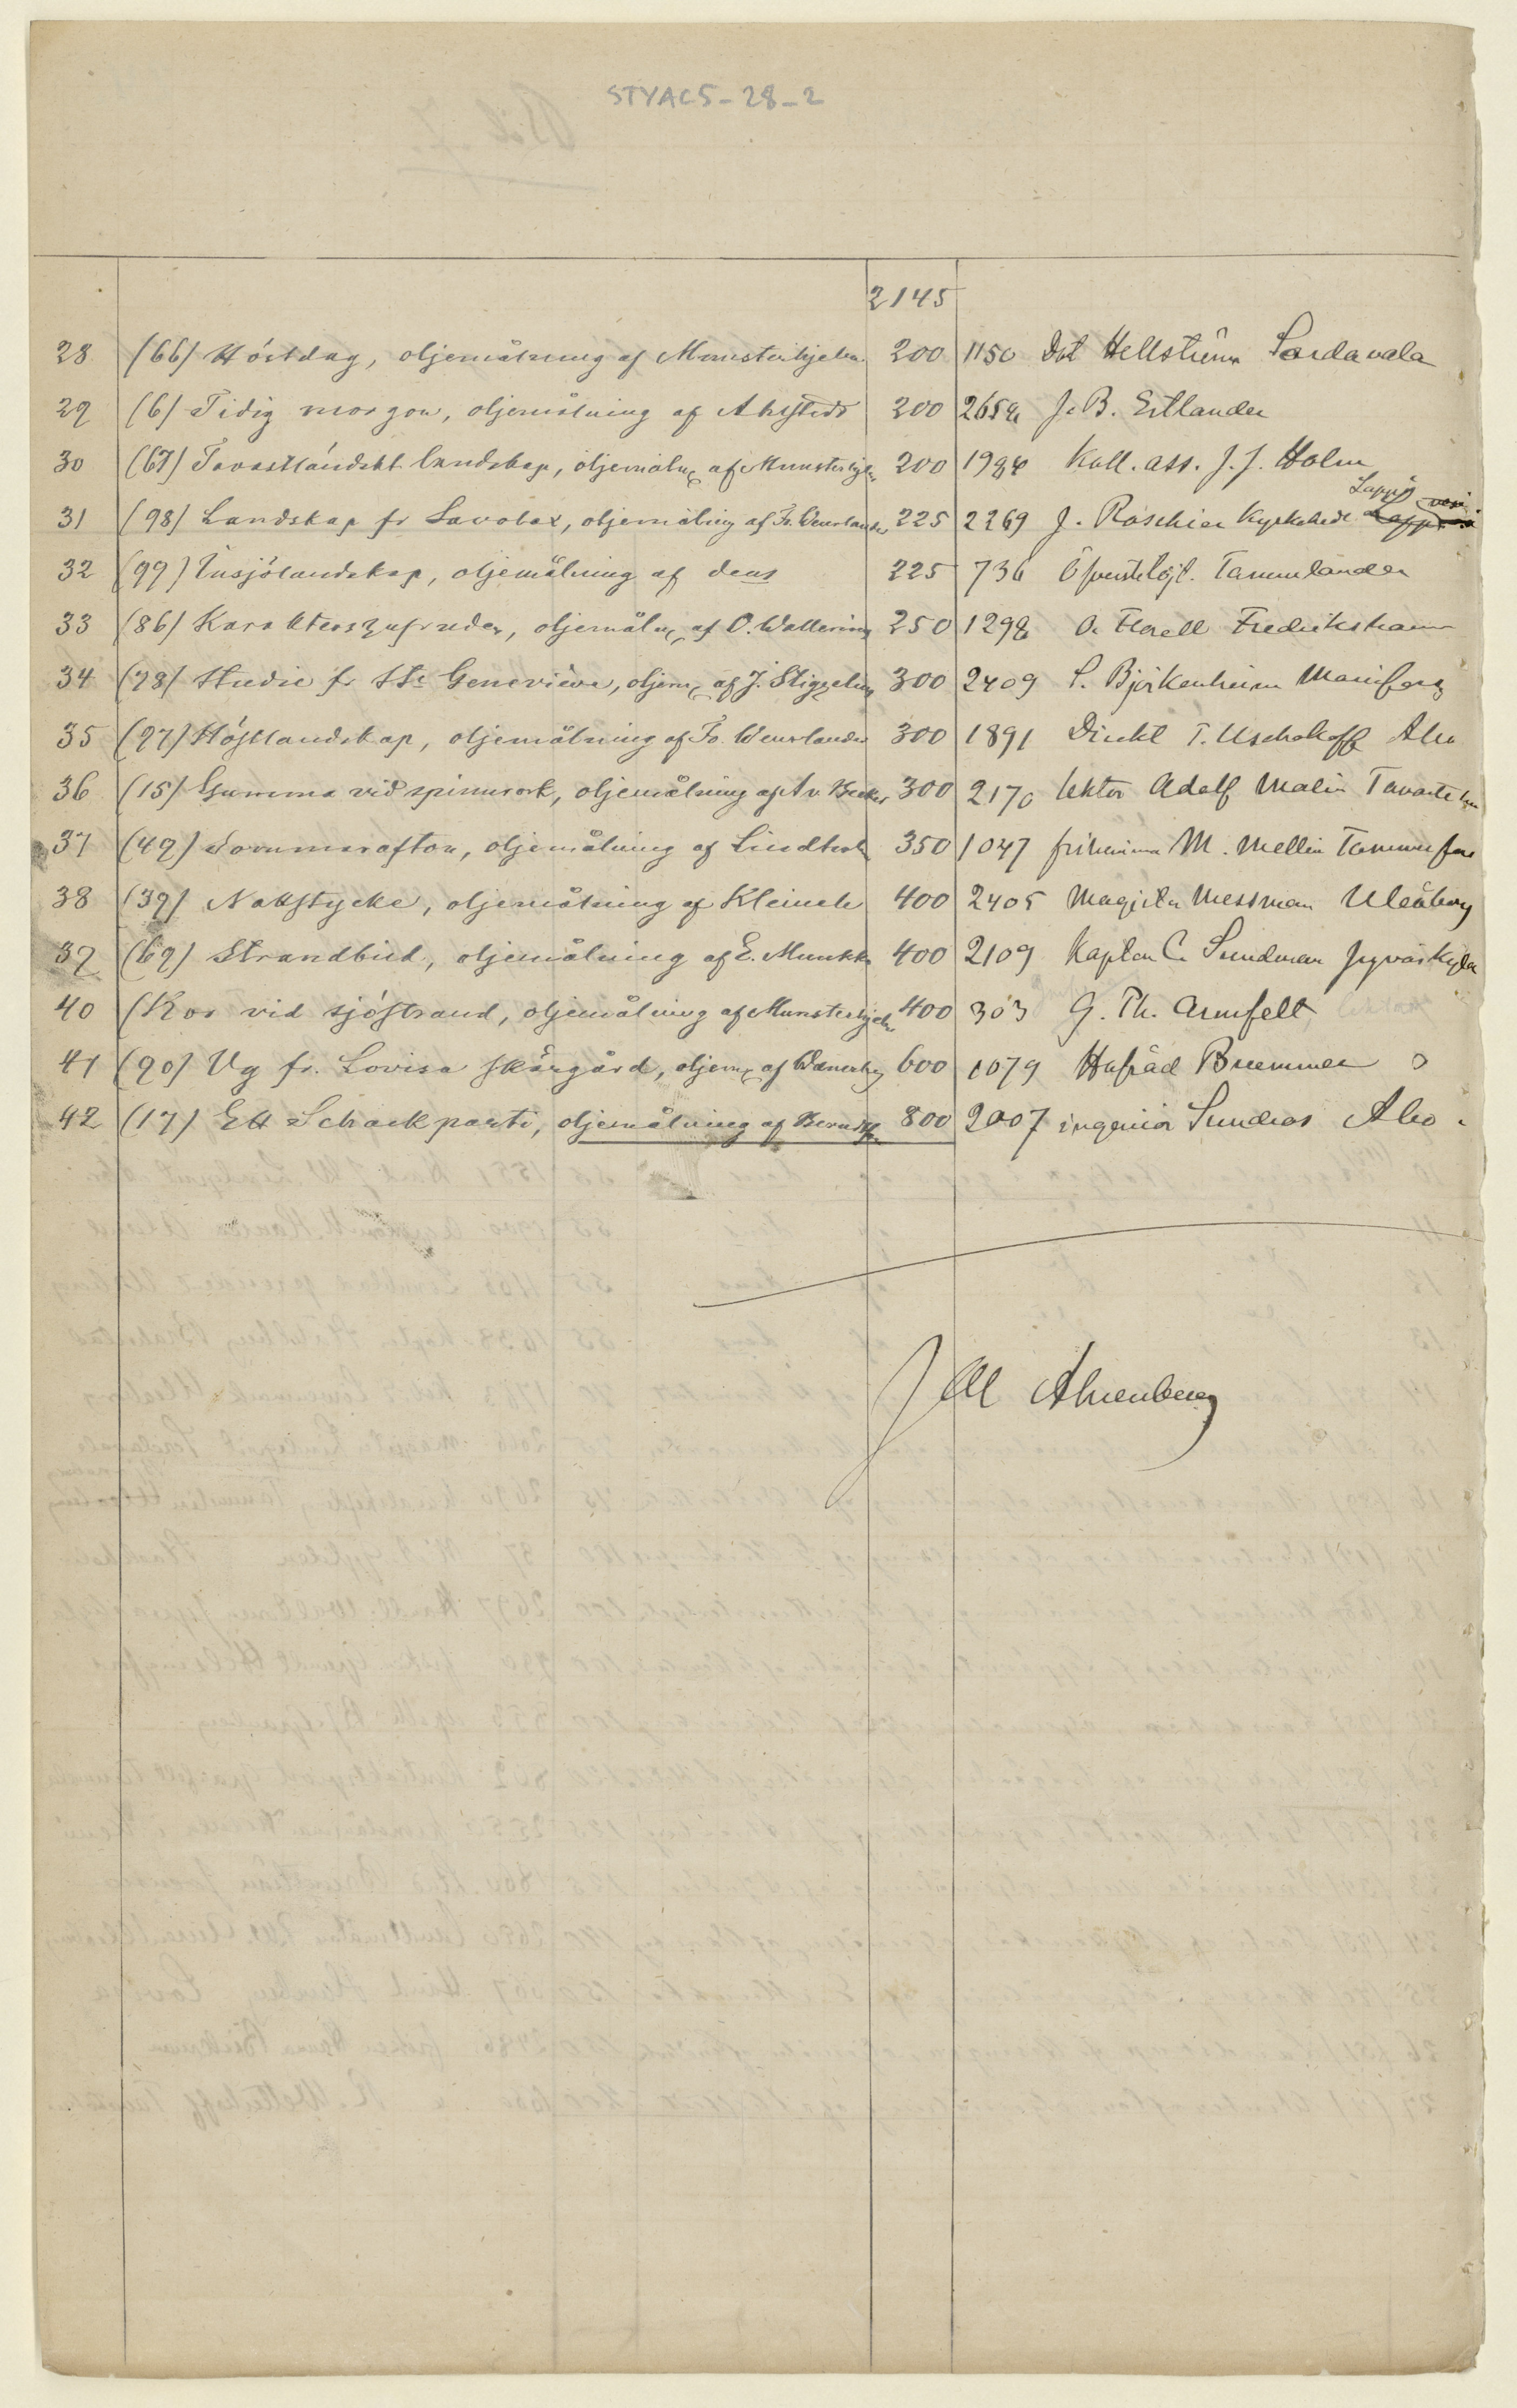 STYAC5-28-2
2145
28 (66) Höstdag, oljemålning af Munsterhjelm 200 1150 Dokt Hellström Sordavala
29 (6) Tidig morgon, oljemålning af Ahlstedt 200 J. B. Erlander
30 (67) Tavastländskt landskap, oljemåln af Munsterhjelm 200 Koll. ass. J. J. Holm
31 (98) Landskap fr Savolax, oljemålning af Fr. Wenerlander 225 2269 J. Roschier Kyrkoherde Lappo
32 (99) Insjölandskap, oljemålning af dens 225 736 Öfverstelöjt. Tammelander
33 (86) Karaktershufvuden, oljemåln af O. Wallering 250 1298 O. Florell Fredrikshamn
34 (78) Studie fr Ste Geneviève, oljem af J. Stigzelius 300 2409 S. Björkenheim
35 (97) Höstlandskap, oljemålning af Fr. Wenerlander 300 1891 Direkt T. Uschakoff Åbo
36 (15) Gumma vid spinnrock, oljemålning af A v Becker 300 2170 lektor Adolf Malin Tavastehus
37 (49) Sommarafton, oljemålning af Lindholm 350 1047 friherinna M. Mellin Tammerfors
38 (39) Nakstycke, oljemålning af Kleineh 400 2405 Magister Messman Uleåborg
39 (69) Strandbild, oljemålning af E. Munkka 400 2109 Kapten C. Sundman Jyväskylä
40 (Kor vid sjöstrand, oljemålning af Munsterhjelm 400 303 G. Th. Armfelt
41 (90) Vy fr. Lovisa skärgård, oljem af Wanerberg 600 1079 Hofråd Bremmer
42 (17) Ett Schackparti, oljemålning af Berndtson 800 2007 ingeniör Sundros Åbo
J Ahrenberg